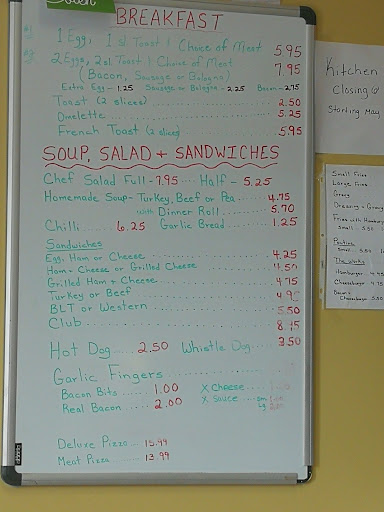 BREAKFAST
#1 1 Egg, 1 sl Toast 1 Choice of Meat 5.95
#2 2 Eggs, 2 sl Toast 1 Choice of Meat 7.95
(Bacon, Sausage or Bologna)
Extra Egg - 1.25 Sausage or Bologna - 2.25 Bacon - 2.75
Toast (2 slices) 2.50
Omelette 5.25
French Toast (2 slices) 5.95
SOUP, SALAD + SANDWICHES
Chef Salad Full - 7.95 Half - 5.25
Homemade Soup - Turkey, Beef or Pea 4.75
with Dinner Roll 5.70
Chilli 6.25 Garlic Bread 1.25
Sandwiches
Egg, Ham or Cheese 4.25
Ham + Cheese or Grilled Cheese 4.50
Grilled Ham + Cheese 4.75
Turkey or Beef
BLT or Western 5.50
Club
Hot Dog 2.50 Whistle Dog 3.50
Garlic Fingers
Bacon Bits 1.00 X Cheese
Real Bacon 2.00 X Sauce sm
Lg
Deluxe Pizza 15.99
Meat Pizza 13.99
Kitchen
Closing
Starting May
Small Fries
Large Fries
Gravy
Dressing + Gravy
Fries with Hamburg
Small
Poutine
Small
The Works
Hamburger
Cheeseburger
Bacon
Cheeseburger